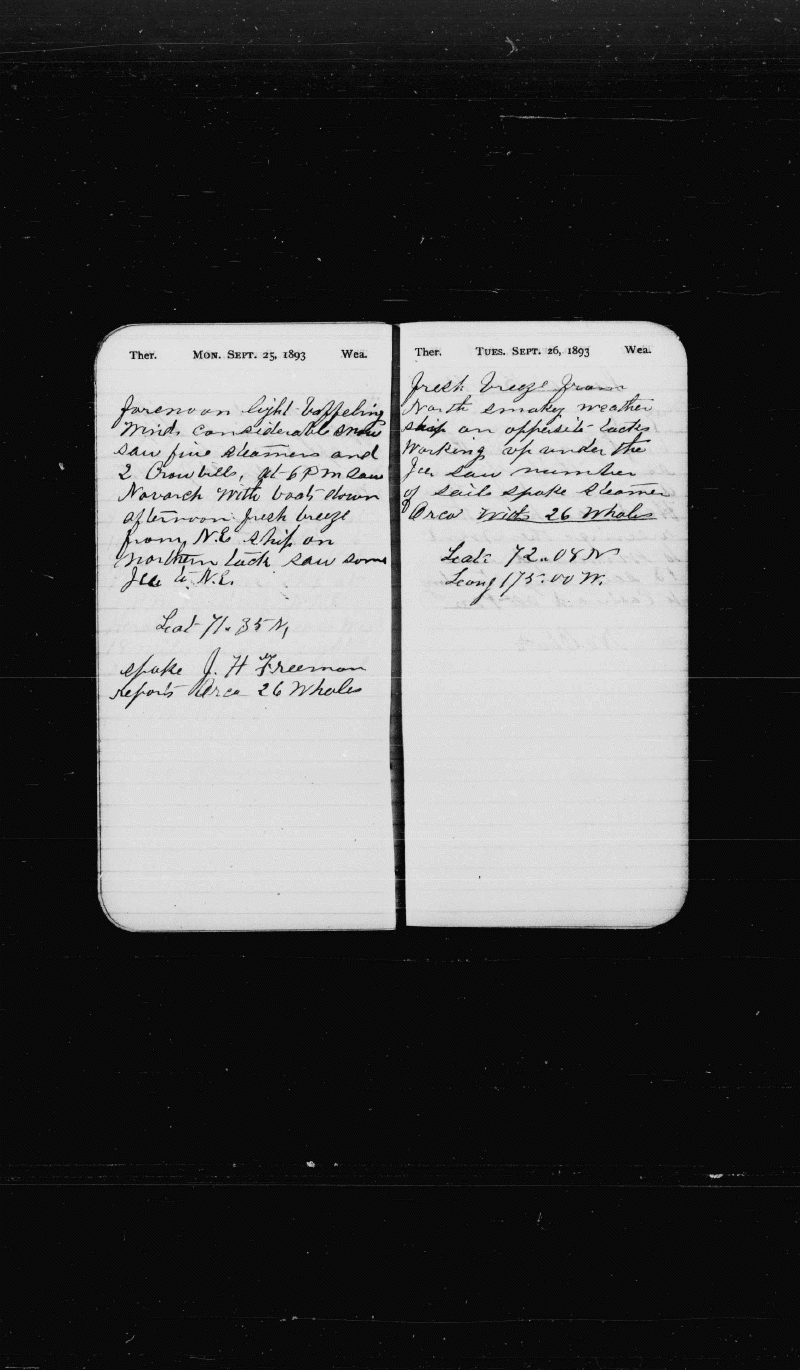 Ther. MON. SEPT. 25, 1893 Wea.
forenoon light baffeling
winds considerable snow
saw five steamers and
2 Crowbills, at 6 PM saw
Navarch with boats down
afternoon fresh breeze
from N.E. ship on
northern tack saw some
Ice to N.E.
Lat 71.35 N,
spoke J. H Freeman
reports Orca 26 Whales
Ther. TUES. SEPT. 26, 1893 Wea.
fresh breeze from
North smokey weather
ship on opposite tacks
Working up under the
Ice saw number
of sails spoke steamer
Orca with 26 Whales
Lat. 72.08 N
Long 175.00 W.